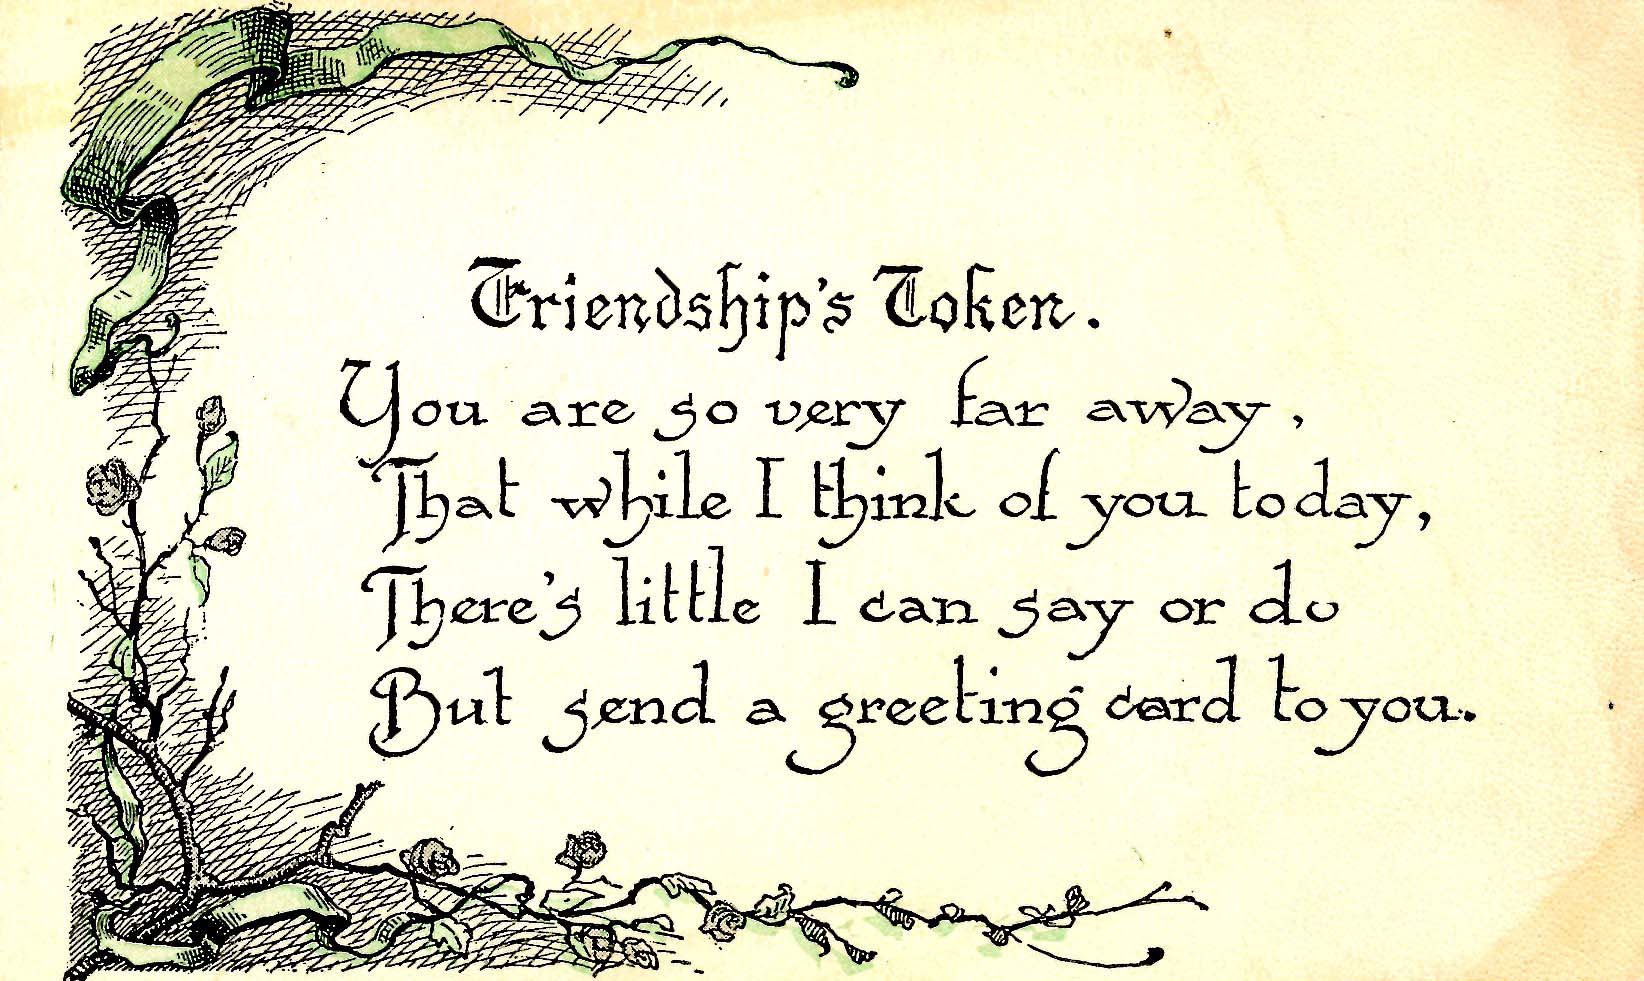 Friendship's Token.
You are so very far away,
That while I think of you today,
There's little I can say or do
But send a greeting card to you.